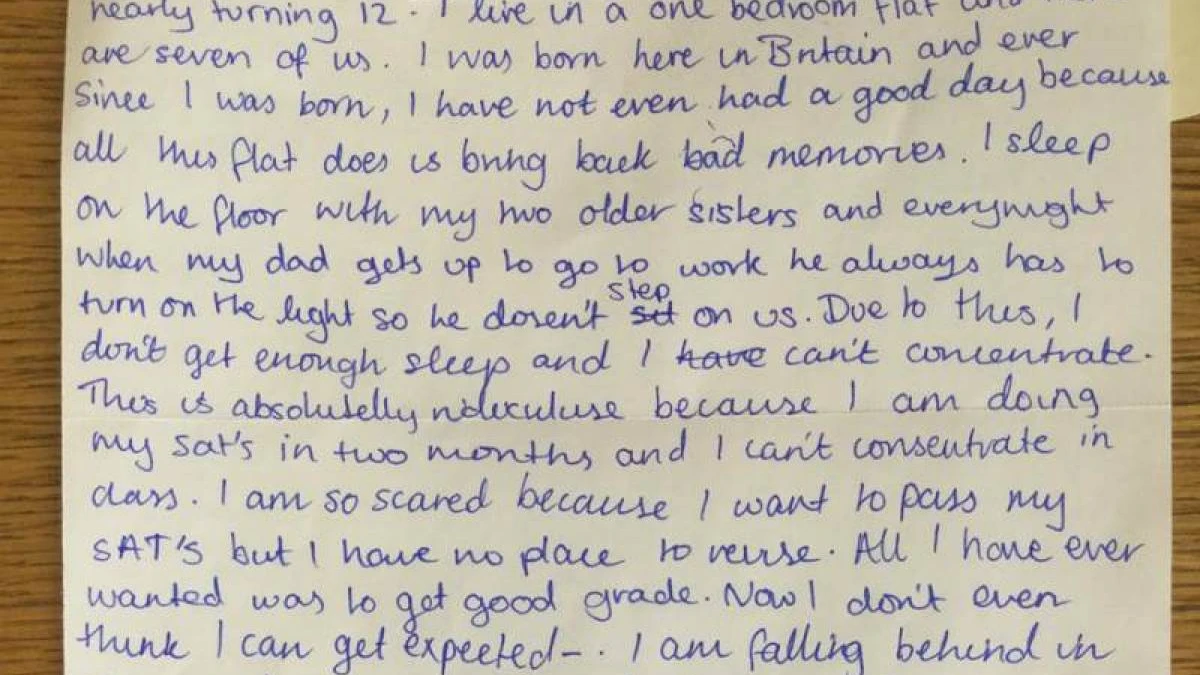 nearly turning 12. I live in a one bedroom flat and
are seven of us. I was born here in Britain and ever
Since I was born, I have not even had a good day because
all this flat does is bring back bad memories. I sleep
on the floor with my two older sisters and everynight
when my dad gets up to go to work he always has to
turn on the light so he dosen't set step on us. Due to this, I
don't get enough sleep and I have can't concentrate.
This is absolutelly rideculuse because I am doing
my sat's in two months and I can't consentrate in
class. I am so scared because I want to pass my
SAT's but I have no place to revise. All I have ever
wanted was to get good grade. Now I don't even
think I can get expected-. I am falling behind in